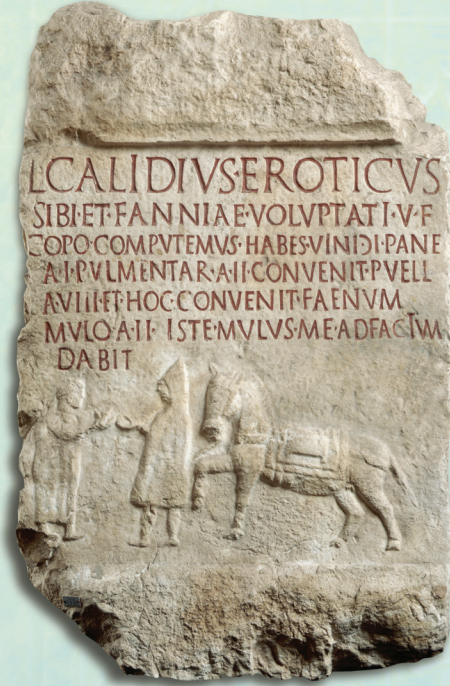 L·CALIDIVS·EROTICVS
SIBI·ET·FANNIAE·VOLVPTATI·V·F
COPO·COMPVTEMUS·HABES·VINI·Ↄ·I·PANE
A·I·PVLMENTAR·A·II·CONVENIT·PVELL
A·VIII·ET·HOC·CONVENIT·FAENVM
MVLO·A·II·ISTE·MULVS·ME·AD·FACTVM
DABIT